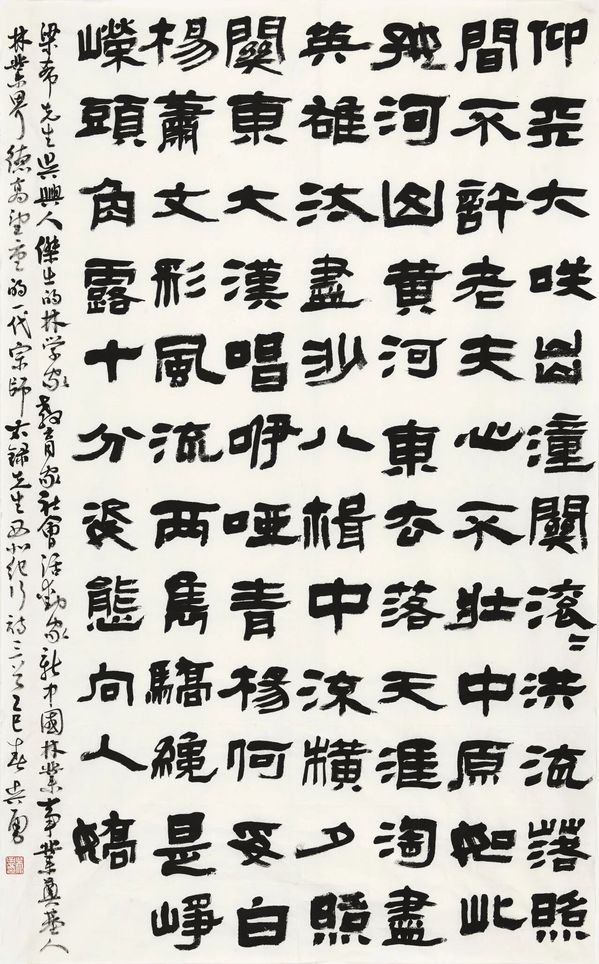 仰天大咲出潼關滾〻洪流落照
間不許老夫心不壯中原如此
好河山黃河東去落天涯淘盡
英雄汰盡沙八楫中流橫夕照
關東大漢唱咿啞青楊何妥白
楊蕭文彩風流兩雋驕纔是崢
嶸頭角露十分姿態向人嬌
梁希先生吳興人傑出的林学家教育家社會活動家新中國林業事業奠基人
林業界德高望重的一代宗師右錄先生西北紀行詩三首乙巳春